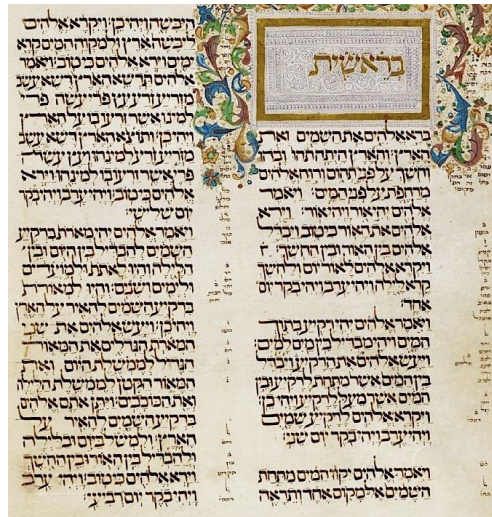 בראשית
ברא אלהים את השמים ואת
הארץ והארץ היתה תהו ובהו
וחשך על פני תהום ורוח אלהים
מרחפת על פני המים ויאמר
אלהים יהי אור ויהי אור וירא
אלהים את האור כי טוב ויבדל
אלהים בין האור ובין החשך
ויקרא אלהים לאור יום ולחשך
קרא לילה ויהי ערב ויהי בקר יום
אחד
ויאמר אלהים יהי רקיע בתוך
המים ויהי מבדיל בין מים למים
ויעש אלהים את הרקיע ויבדל
בין המים אשר מתחת לרקיע ובין
המים אשר מעל לרקיע ויהי כן
ויקרא אלהים לרקיע שמים
ויהי ערב ויהי בקר יום שני
ויאמר אלהים יקוו המים מתחת
השמים אל מקום אחד ותראה
היבשה ויהי כן ויקרא אלהים
ליבשה ארץ ולמקוה המים קרא
ימים וירא אלהים כי טוב ויאמר
אלהים תדשא הארץ דשא עשב
מזריע זרע עץ פרי עשה פרי
למינו אשר זרעו בו על הארץ
ויהי כן ותוצא הארץ דשא עשב
מזריע זרע למינהו ועץ עשה
פרי אשר זרעו בו למינהו וירא
אלהים כי טוב ויהי ערב ויהי בקר
יום שלישי
ויאמר אלהים יהי מארת ברקיע
השמים להבדיל בין היום ובין
הלילה והיו לאתת ולמועדים
ולימים ושנים והיו למאורת
ברקיע השמים להאיר על הארץ
ויהי כן ויעש אלהים את שני
המארת הגדלים את המאור
הגדל לממשלת היום ואת
המאור הקטן לממשלת הלילה
ואת הכוכבים ויתן אתם אלהים
ברקיע השמים להאיר על
הארץ ולמשל ביום ובלילה
ולהבדיל בין האור ובין החשך
וירא אלהים כי טוב ויהי ערב
ויהי בקר יום רביעי